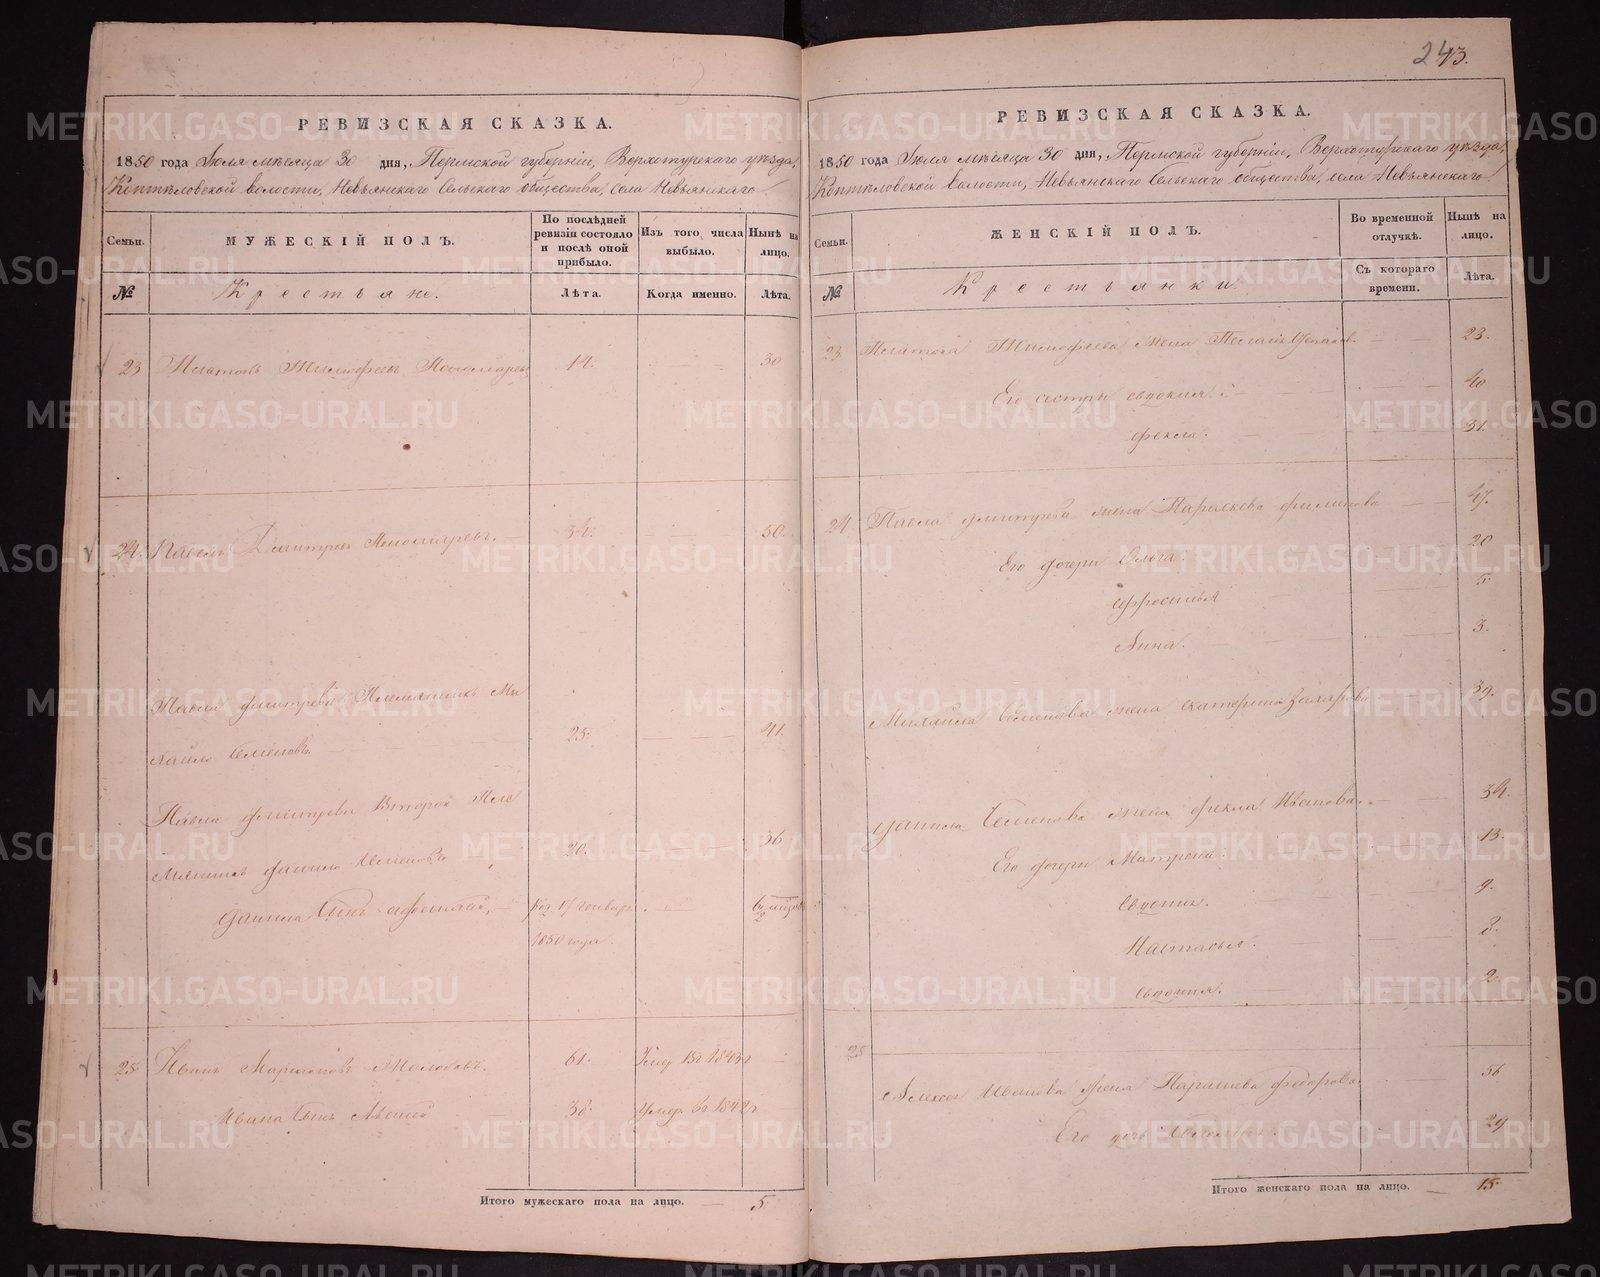 243.
РЕВИЗСКАЯ СКАЗКА.
1850 года Іюля мѣсяца 30 дня, Пермской губерніи, Верхотурскаго уѣзда,
Коптѣловской волости, Невьянскаго Сельскаго общества, села Невьянскаго
Семьи.
МУЖЕСКІЙ ПОЛЪ.
По послѣдней ревизіи состояло и послѣ оной прибыло.
Изъ того числа выбыло.
Нынѣ на лицо.
№
Крестьяне.
Лѣта.
Когда именно.
Лѣта.
23 Платонъ Тимофеевъ Пономаревъ 14. 30
24. Павелъ Дмитріевъ Пономаревъ. 34. 50.
Павла Дмитріева Племянникъ Ми
хайло Семеновъ 25. 41.
Павла Дмитріева Второй Пле
мянникъ Данило Семеновъ 20. 36
Данила Сынъ
1850 года.
25 Иванъ 61.
Ивана Сынъ Алексей 38. умеръ въ 1842 г
Итого мужескаго пола на лицо. 5
РЕВИЗСКАЯ СКАЗКА.
1850 года Іюля мѣсяца 30 дня, Пермской губерніи, Верхотурскаго уѣзда,
Коптѣловской волости, Невьянскаго Сельскаго общества, села Невьянскаго
Семьи.
ЖЕНСКІЙ ПОЛЪ.
Во временной отлучкѣ.
Нынѣ на лицо.
№
Крестьянки.
Съ котораго времени.
Лѣта.
23 Платона Тимофеева жена 23.
Его сестры Евдокия. 40
Фекла. 31.
24 Павла Дмитрева жена Парасковья Филипова 47.
Его дочери Ольга. 20
Афросинья 5
Анна. 3.
Михайла Семенова жена Екатерина Захарова 39.
Данила Семенова жена Фекла Иванова. 34.
Его дочери Матрена. 13.
9.
Настасья.
Евдокия. 2
25
Алексея Иванова жена Федорова 56
Его дочь 29
Итого женскаго пола на лицо. 15
METRIKI.GASO-URAL.RU